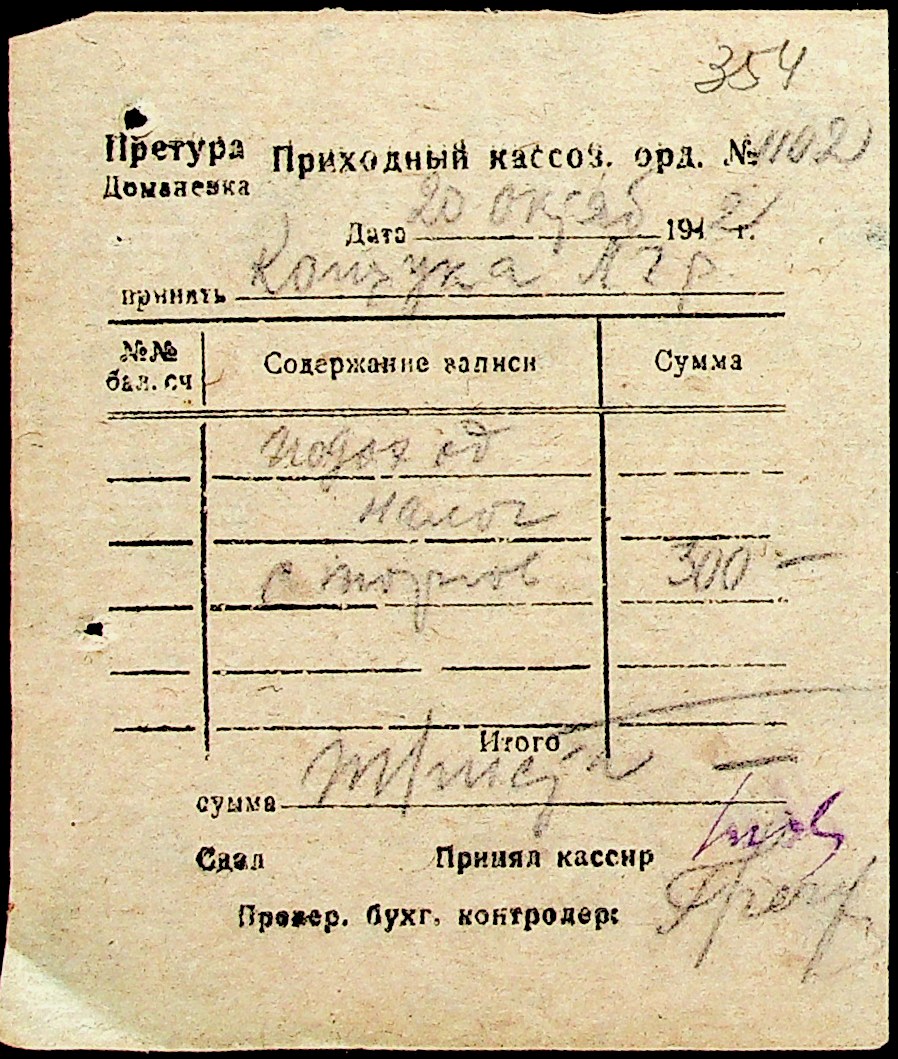 354
Претура Приходный кассов. орд. № 1102
Доманевка
Дата 20 октяб 194 2 г.
принять
№№ бал. сч Содержание записи Сумма
подоход
налог
с торгов 300 —
Итого
сумма Триста —
Сдал Принял кассир
Провер. бухг. контролер: